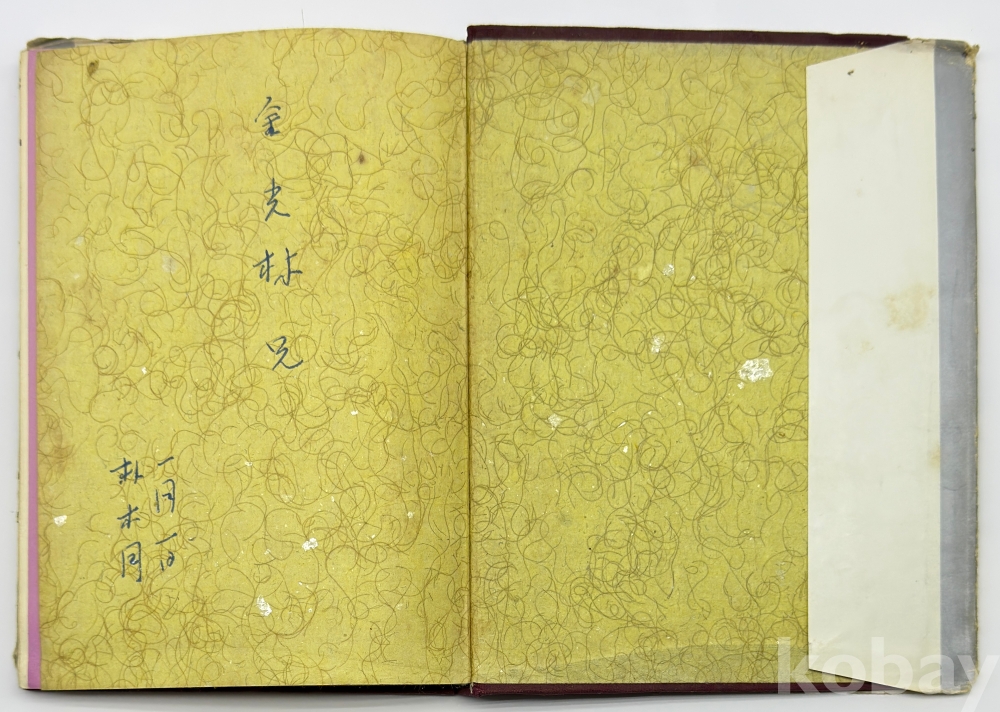 金光林兄
一月一日
朴木月
kobay